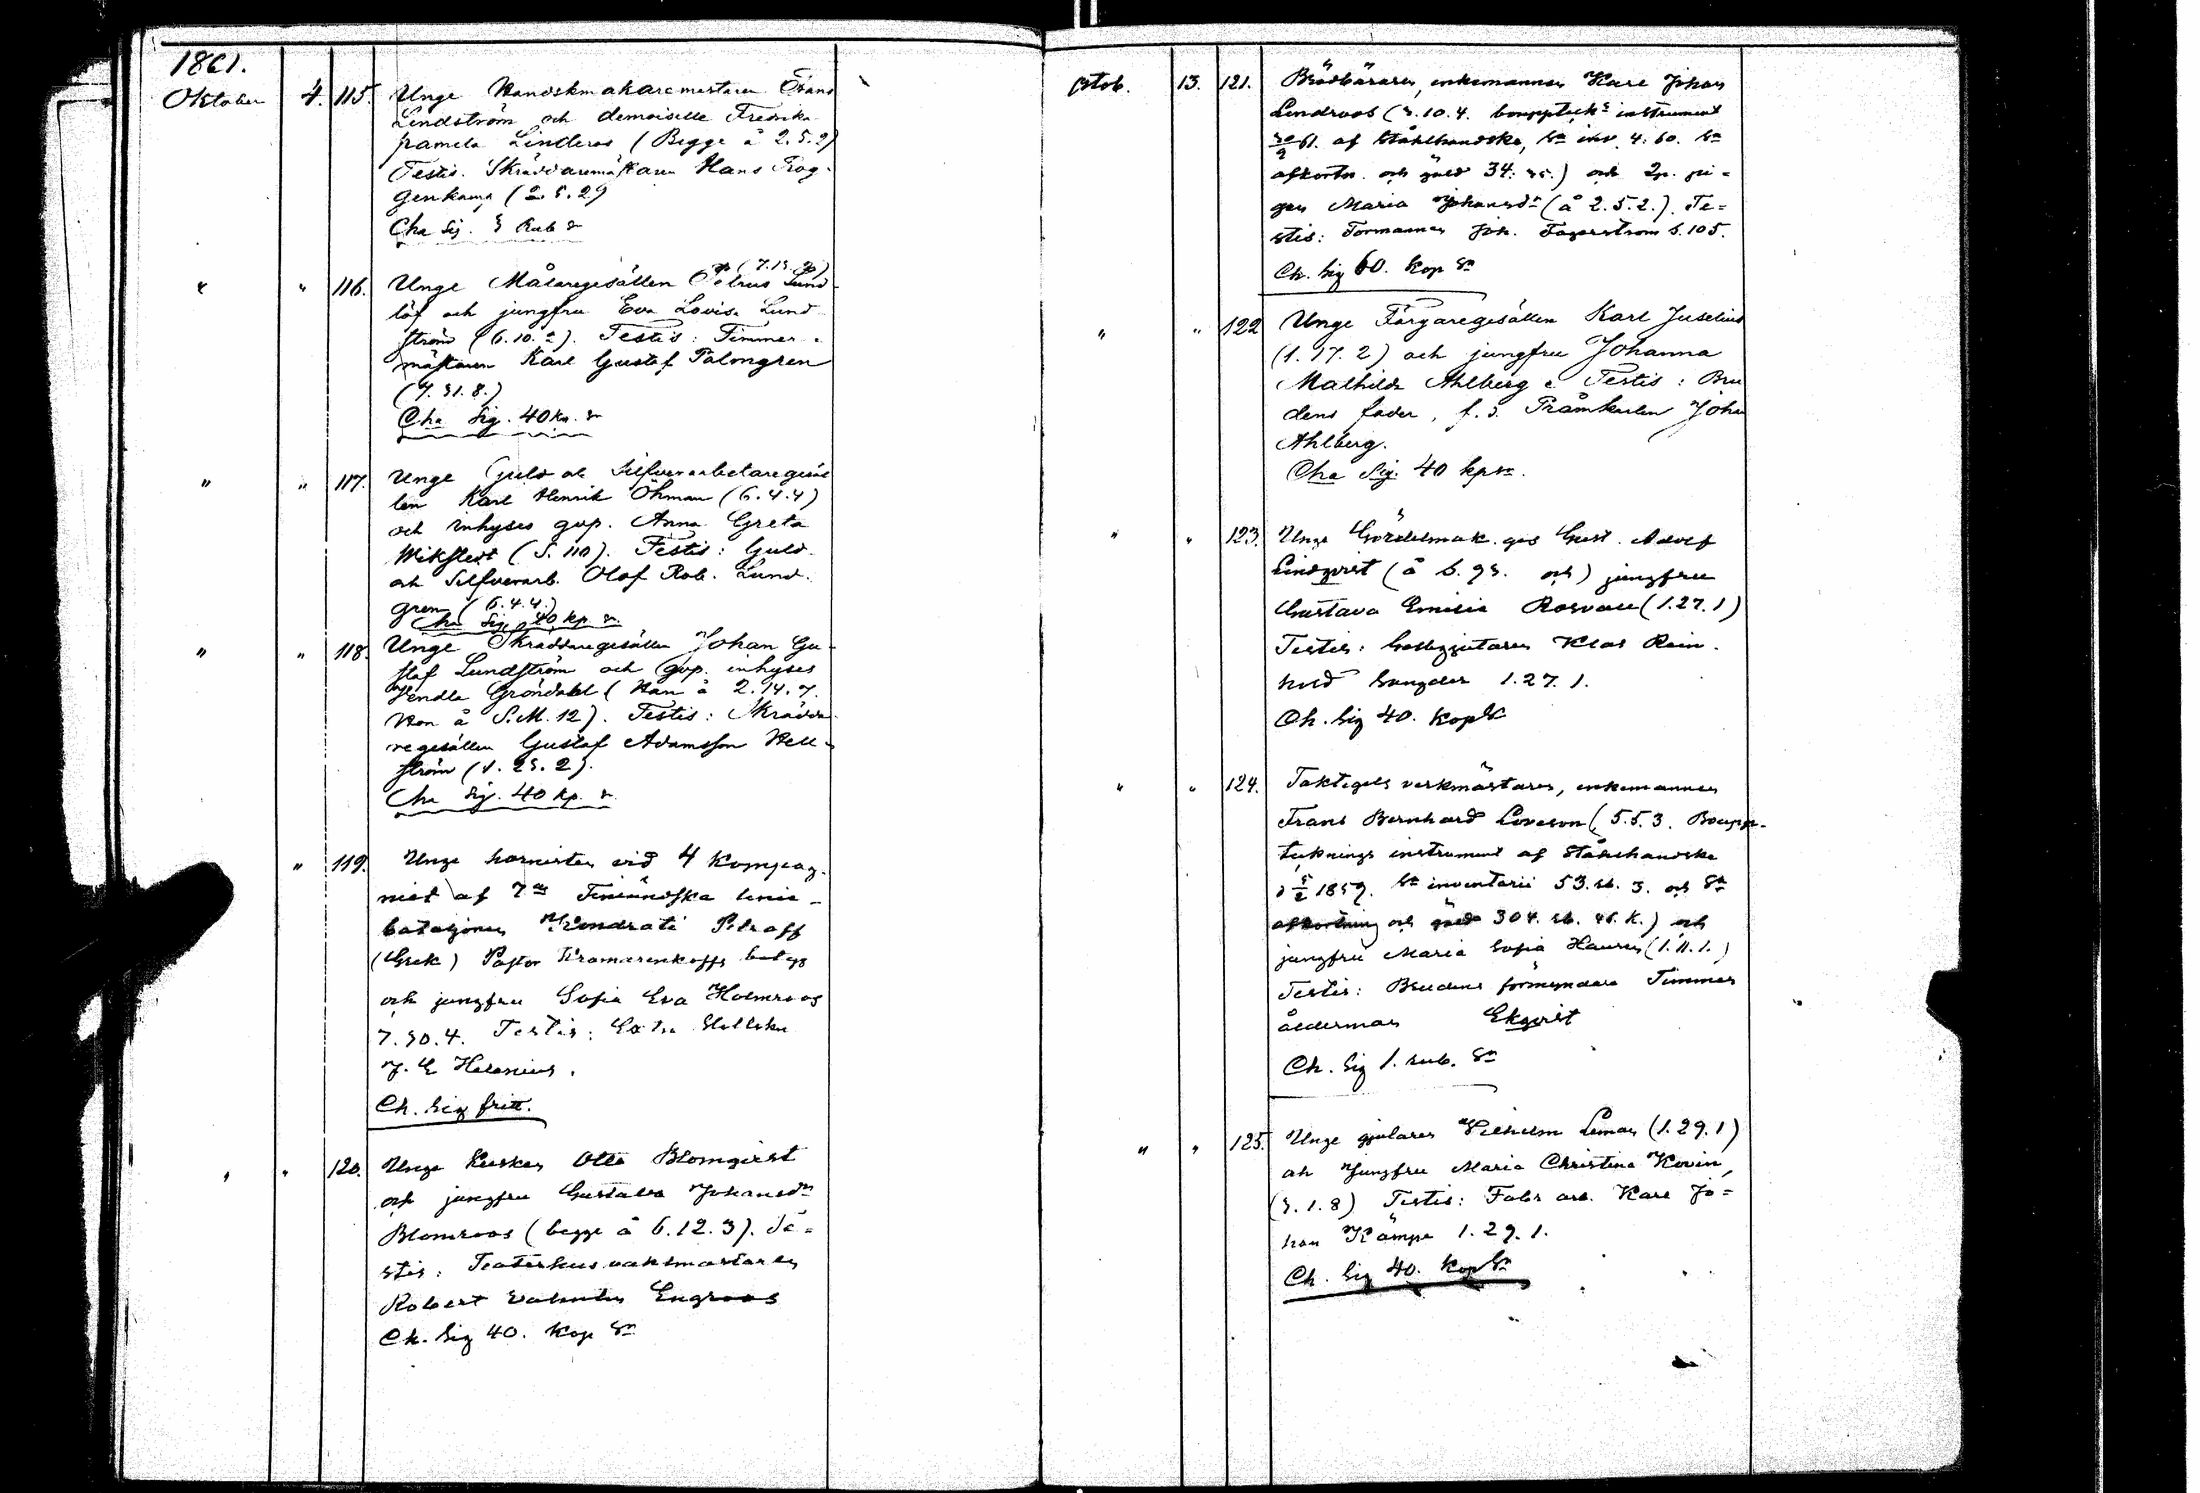 1861.
Oktober 4. 115. Unge Handskmakaremästaren Frans
Lindström och demoiselle Fredrika
Pamela Lindleros (Begge å 2.5.2)
Testis. Skräddaremästaren Hans Trog-
genkamp (2.5.2)
Cha Sig. 3 Rub Sr
" " 116. Unge Målaregesällen Petrus Lund- (7.15.20)
löf och jungfru Eva Lovisa Lund
ström (6.10.2). Testis: Timmer-
mästaren Karl Gustaf Palmgren
(7.31.8.)
Cha Sig. 40 kp. Sr
" " 117. Unge Guld och Silfverarbetaregesäl
len Karl Henrik Öhman (6.4.4)
och inhyses qvp. Anna Greta
Wikstedt (S. 110). Testis: Guld-
och Silfverarb. Olof Rob. Lund-
gren (6.4.4.)
Cha Sig. 40 kp. Sr
" " 118. Unge Skräddaregesällen Johan Gu-
staf Lundström och qvp. inhyses
Vendla Gröndahl (Han å 2.14.7.
Hon å S.M. 12). Testis: Skrädda
regesällen Gustaf Adamsson Hell-
ström (1.25.2).
Cha Sig. 40 kp. Sr
" 119. Unge hornisten vid 4 Kompag-
niet af 7de Finländska linie-
bataljonen Kondrati Petroff
(Grek) Pastor Kramarenkoffs betyg
och jungfru Sofia Eva Holmroos
7.30.4. Testis: Extra
J. E Helenius.
Ch. Sig fritt.
" " 120. Unge Kusken Otto Blomqvist
och jungfru Gustava Johansdr
Blomroos (begge å 6.12.3). Te-
stis: Teaterhus vaktmästaren
Robert Valentin Engroos
Ch. Sig 40. Kop Sr
Oktob. 13. 121. Brödbäraren, enkemannen Karl Johan
Lindroos (3.10.4. bouppteckns instrument
30/9 61. af Stålhandske, Sa inv. 4:60. Sa
afkortn. och gäld 34: 35.) och 2p. pi-
gan Maria Johansdr (å 2.5.2.). Te-
stis: Formannen Joh. Fagerström S. 105.
Ch. Sig 60. Kop Sr
" " 122 Unge Färgaregesällen Karl Juselius
(1.17.2) och jungfru Johanna
Mathilda Ahlberg Testis: Bru
dens fader, f.d. Pråmkarlen Joha
Ahlberg.
Cha Sig. 40 kp Sr.
" " 123. Unge Gördelmak. ges Gust. Adolf
Lindqvist (å S. 93. och) jungfru
Gustava Emilia Rosvall (1.27.1)
Testis: Gelbgjutaren Klas Rein-
hold Sangder 1.27.1.
Ch. Sig 40. Kop Sr
" " 124. Taktegels verkmästaren, enkemannen
Frans Bernhard Loveson (5.5.3. Boupp-
teknings instrument af Stålhandske
d 5/2 1859. Sa inventarii 53. rb. 3. och Sa
afkortning och gäld 304. rb. 46. k.) och
jungfru Maria Sofia Hauren (1.11.1.)
Testis: Brudens förmyndare Timmer
ålderman Ekqvist
Ch. Sig 1. rub. Sr
" " 125. Unge gjutaren Vilhelm Leman (1.29.1)
och Jungfru Maria Christina Kovin,
(3.1.8) Testis: Fabr arb. Karl Jo-
han Kämpe 1.29.1.
Ch. Sig 40. Kop Sr